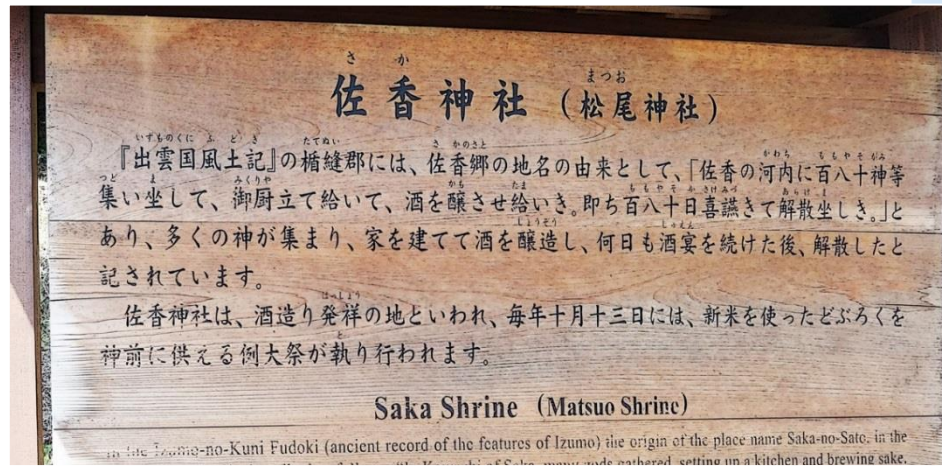 さか まつお
佐香神社(松尾神社)
いずものくに ふどき たてぬい さかのさと かわち ももやそがみ
『出雲国風土記』の楯縫郡には、佐香郷の地名の由来として、「佐香の河内に百八十神等
つど ま みくりや かも たま ももやそか さけみづ あらけ ま
集い坐して、御厨立て給いて、酒を醸させ給いき。即ち百八十日喜讌きて解散坐しき。」と
じょうぞう しゅえん
あり、多くの神が集まり、家を建てて酒を醸造し、何日も酒宴を続けた後、解散したと
記されています。
はっしょう
佐香神社は、酒造り発祥の地といわれ、毎年十月十三日には、新米を使ったどぶろくを
と
神前に供える例大祭が執り行われます。
Saka Shrine (Matsuo Shrine)
In the Izumo-no-Kuni Fudoki (ancient record of the features of Izumo) the origin of the place name Saka-no-Sato, in the
of Saka, many gods gathered, setting up a kitchen and brewing sake.